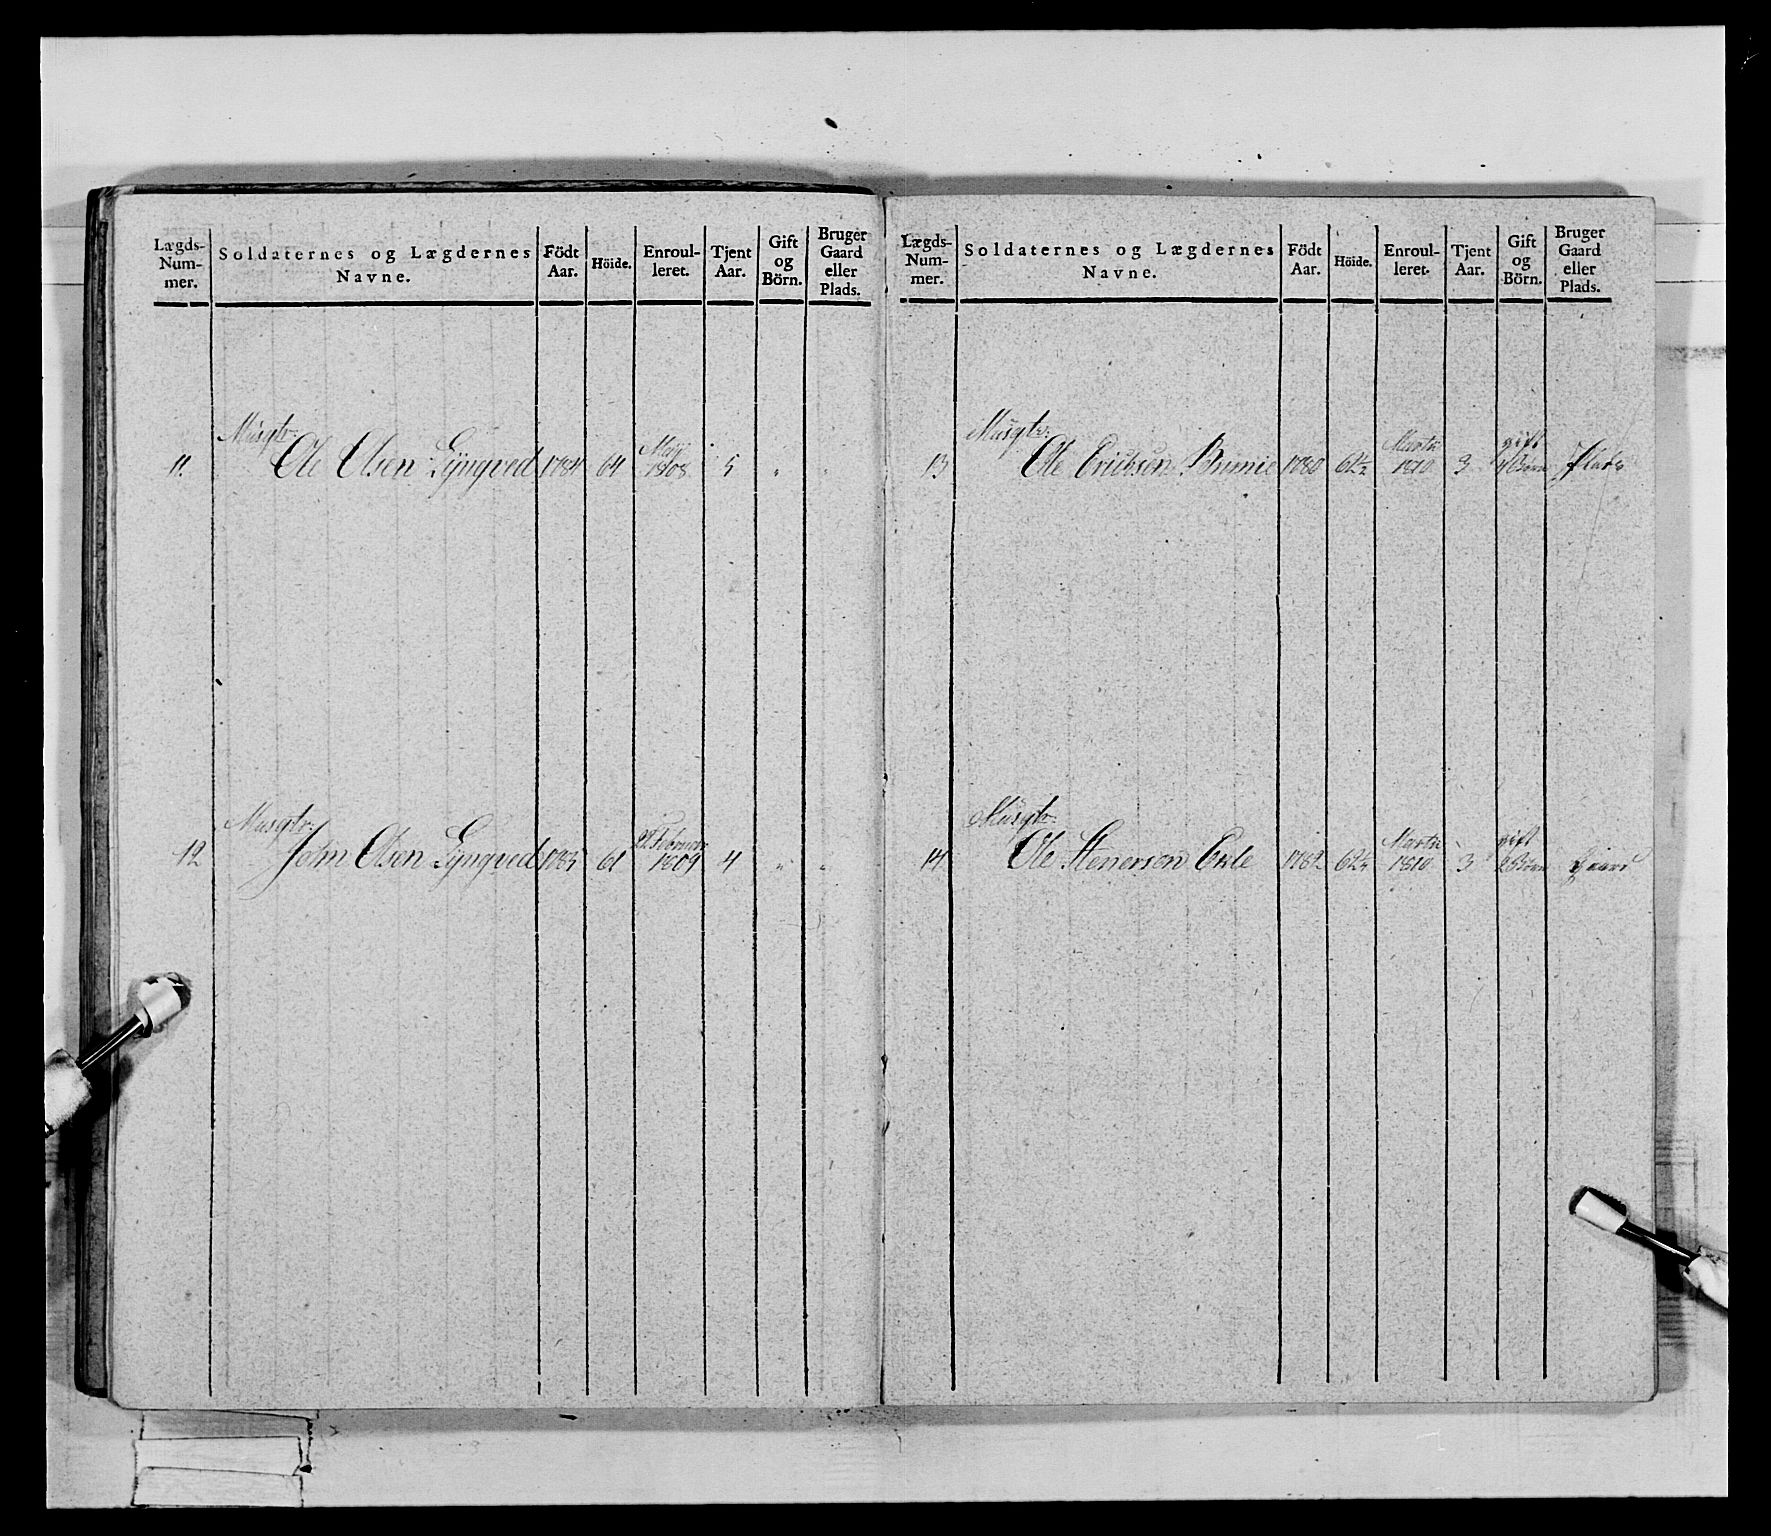 Lægds-Num-mer. Soldaternes og Lægdernes Navne. Födt Aar. Höide. Enroul-leret. Tjent Aar. Gift og Börn. Bruger Gaard eller Plads.
Musqtr:
11 Ole Olsen Lÿngved 1784 64 Maÿ 1808 5 " "
Musqtr:
12 John Olsen Lÿngved 61 22 Februar 1809 4 " "
Lægds-Num-mer. Soldaternes og Lægdernes Navne. Födt Aar. Höide. Enroul-leret. Tjent Aar. Gift og Börn. Bruger Gaard eller Plads.
Musqtr:
13 Ole Erichsen 1780 Martii 1810 3 gift Börn Plads
Musqtr:
14 Ole Stenersen 1782 Martii 1810 3 gift 2 Börn Gaard